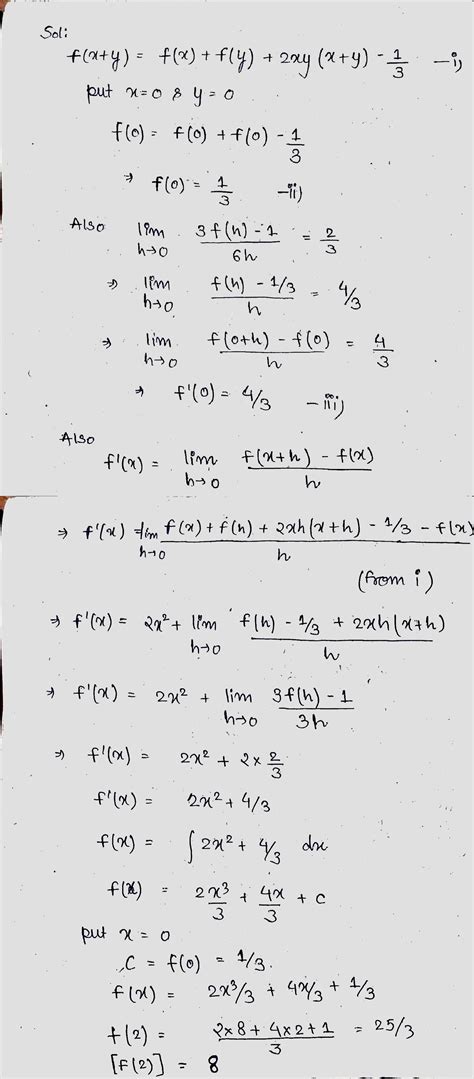 Sol:
f(x+y) = f(x) + f(y) + 2xy (x+y) - 1/3 —i)
put x=0 & y=0
f(0) = f(0) + f(0) - 1/3
⇒ f(0) = 1/3 —ii)
Also lim h→0 3f(h) - 1 / 6h = 2/3
⇒ lim h→0 f(h) - 1/3 / h = 4/3
⇒ lim h→0 f(0+h) - f(0) / h = 4/3
⇒ f'(0) = 4/3 —iii)
Also
f'(x) = lim h→0 f(x+h) - f(x) / h
⇒ f'(x) = lim h→0 f(x) + f(h) + 2xh(x+h) - 1/3 - f(x) / h
(from i)
⇒ f'(x) = 2x² + lim h→0 f(h) - 1/3 + 2xh(x+h) / h
⇒ f'(x) = 2x² + lim h→0 3f(h) - 1 / 3h
⇒ f'(x) = 2x² + 2 x 2/3
f'(x) = 2x² + 4/3
f(x) = ∫ 2x² + 4/3 dx
f(x) = 2x³/3 + 4x/3 + c
put x = 0
C = f(0) = 1/3.
f(x) = 2x³/3 + 4x/3 + 1/3
f(2) = 2x8 + 4x2 + 1 / 3 = 25/3
[f(2)] = 8